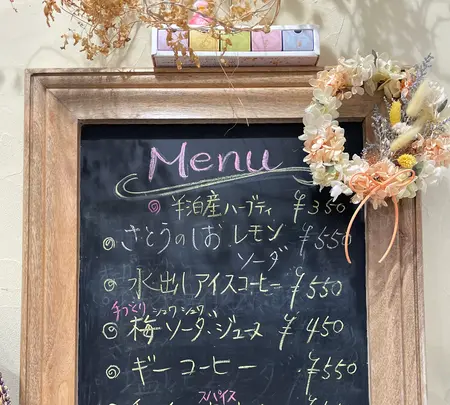 Menu
半泊産ハーブティ ¥350
さとうのしお レモン ¥550
ソーダ
水出しアイスコーヒー ¥550
手づくり シュワシュワ
梅ソーダ・ジュース ¥450
ギーコーヒー ¥550
スパイス